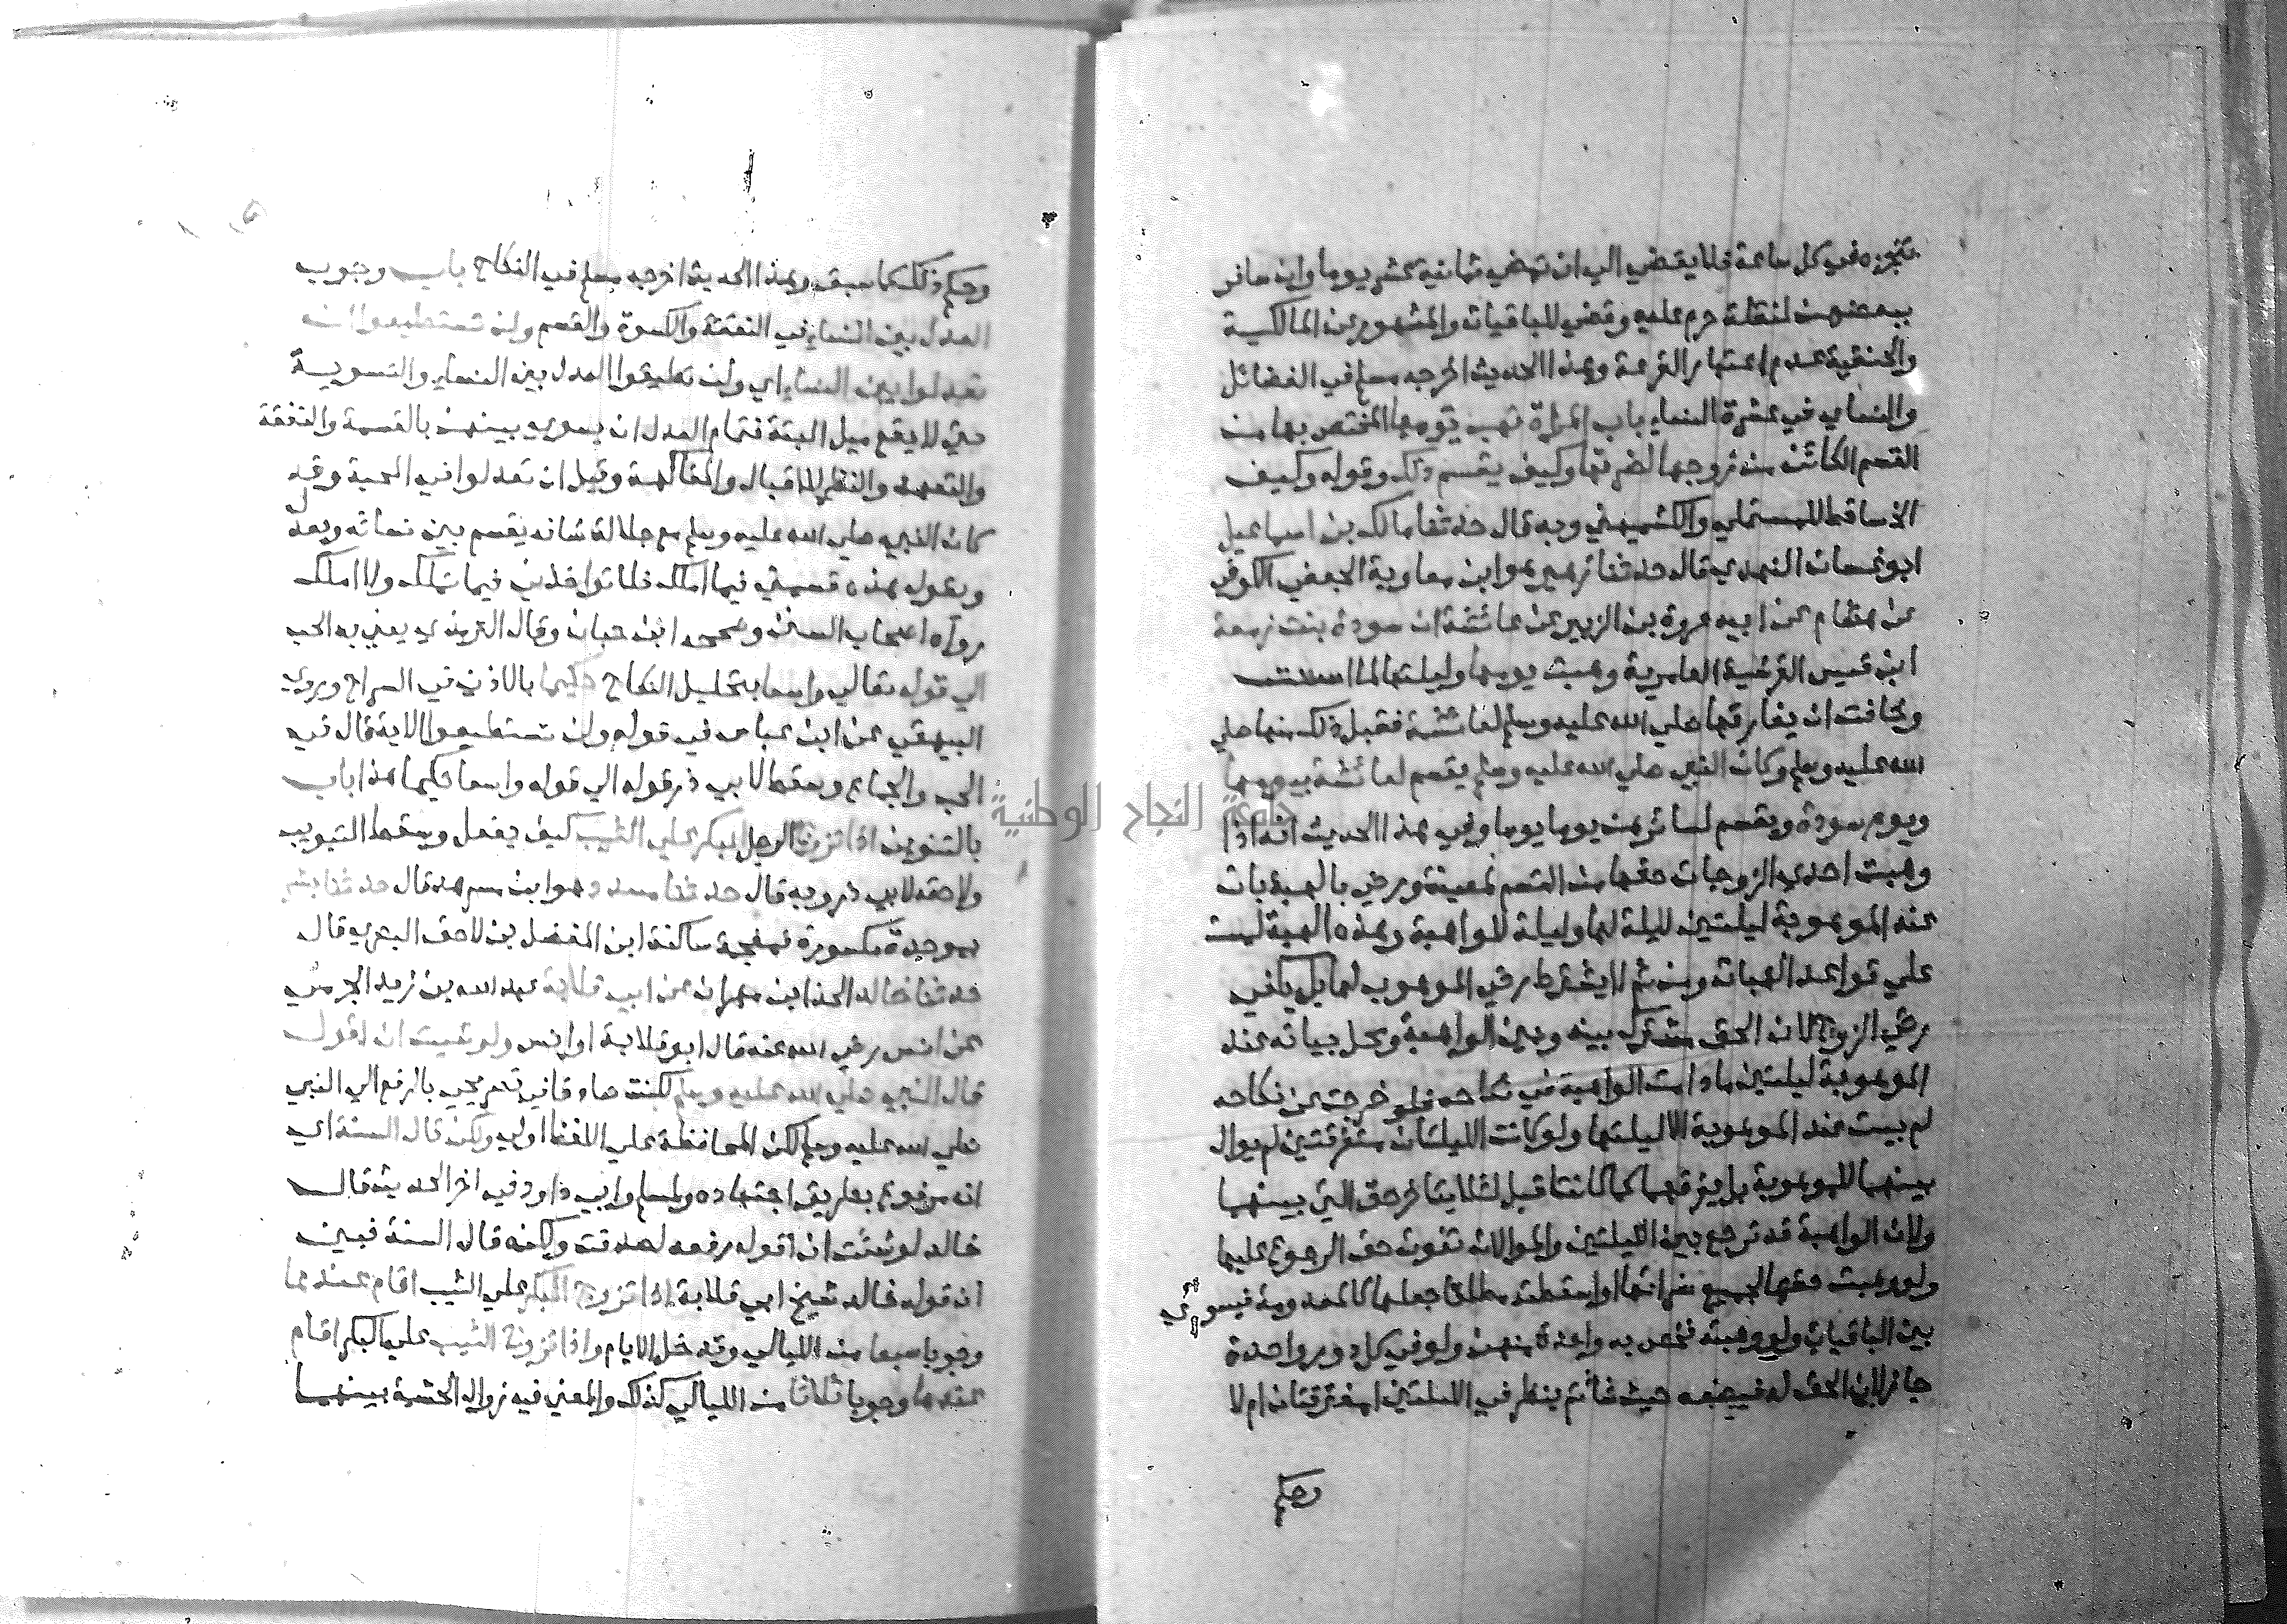 تتجزه في كل ساعة فلا يقضي الي ان تمضي ثمانية عشر يوما وان سافر
ببعضهن لنقلة حرم عليه وقضي للباقيات والمشهور عن المالكية
والحنفية عدم اعتبار القرعة وهذا الحديث اخرجه مسلم في الفضائل
والنساي في عشرة النساء باب المراة تهب يومها المختص بها من
القسم الكائن من زوجها لضرتها وكيف يقسم ذلك وقوله وكيف
الخ ساقط للمستملي والكشميهني وبه قال حدثنا مالك بن اسماعيل
ابو غسان النهدي قال حدثنا زهير هو ابن معاوية الجعفي الكوفي
عن هشام عن ابيه عروة بن الزبير عن عائشة ان سودة بنت زمعة
ابن قيس القرشية العامرية وهبت يومها وليلتها لما اسنت
وخافت ان يفارقها صلي الله عليه وسلم لعائشة فقبل ذلك منها صلي
الله عليه وسلم وكان النبي صلي الله عليه وسلم يقسم لعائشة بيومها
ويوم سودة ويقسم لسائرهن يوما يوما وفي هذا الحديث انه اذا
وهبت احدي الزوجات حقها من القسم لمعينة ورضي بالهبة بات
عند الموهوبة ليلتين ليلة لها وليلة للواهبة وهذه الهبة ليست
علي قواعد الهبات ومن ثم لا يشترط رضي الموهوب لها بل يكفي
رضي الزوج لان الحق مشترك بينه وبين الواهبة ومحل بياته عند
الموهوبة ليلتين مادامت الواهبة في نكاحه فلو خرجت عن نكاحه
لم يبت عند الموهوبة الا ليلتها ولو كانت الليلتان متفرقتين لم يوال
بينهما للموهوبة بل يفرقهما كما كانتا قبل لئلا يتاخر حق التي بينهما
ولان الواهبة قد ترجع بين الليلتين والموالات تفوت حق الرجوع عليها
ولو وهبت حقها لجميع ضراتها او اسقطته مطلقا جعلها كالمعدومة فيسوي
بين الباقيات ولو وهبته فخص به واحدة منهن ولو في كل دور واحدة
جاز لان الحق له فيضعه حيث شا ثم ينظر في الليلتين امتفرقتان ام لا
وحكم
وحكم ذلك كما سبق وهذا الحديث اخرجه مسلم في النكاح باب وجوب
العدل بين النساء في النفقة والكسوة والقسم ولن تستطيعوا ان
تعدلوا بين النساء اي ولن تطيقوا العدل بين النساء والتسوية
حتي لا يقع ميل البتة فتمام العدل ان يسوي بينهن بالقسمة والنفقة
والتعهد والنظر والاقبال والمفاكهة وقيل ان تعدلوا في المحبة وقد
كان النبي صلي الله عليه وسلم مع جلالة شانه يقسم بين نسائه ويعدل
ويقول هذه قسمتي فيما املك فلا تواخذني فيما تملك ولا املك
رواه اصحاب السنن وصححه ابن حبان وقال الترمذي يعني به الحب
الي قوله تعالي واسعا بتحليل النكاح حكيما بالاذن في السراح وروي
البيهقي عن ابن عباس في قوله ولن تستطيعوا الاية قال في
الحب والجماع وسقط لابي ذر قوله الي قوله واسعا حكيما هذا باب
بالتنوين اذا تزوج الرجل البكر علي الثيب كيف يفعل وسقط التبويب
ولاحقه لابي ذر وبه قال حدثنا مسدد وهو ابن مسرهد قال حدثنا بشر
بموحدة مكسورة فمعجمة ساكنة ابن المفضل بن لاحق البصري قال
حدثنا خالد الحذا ابن مهران عن ابي قلابة عبد الله بن زيد الجرمي
عن انس رضي الله عنه قال ابو قلابة او انس ولو شيت ان اقول
قال النبي صلي الله عليه وسلم لكنت صادقا في تصريحي بالرفع الي النبي
صلي الله عليه وسلم لكن المحافظة علي اللفظ اولي ولكن قال السنة اي
انه مرفوع بطريق اجتهاده ولمسلم وابي داود في اخر الحديث قال
خالد لو شئت ان اقول رفعه لصدقت ولكنه قال السنة فبين
انه قول خالد شيخ ابي قلابة اذا تزوج البكر علي الثيب اقام عندها
وجوبا سبعا من الليالي وتدخل الايام واذا تزوج الثيب علي البكر اقام
عندها وجوبا ثلاثا من الليالي كذلك والمعني فيه زوال الحشمة بينهما
جامعة النجاح الوطنية